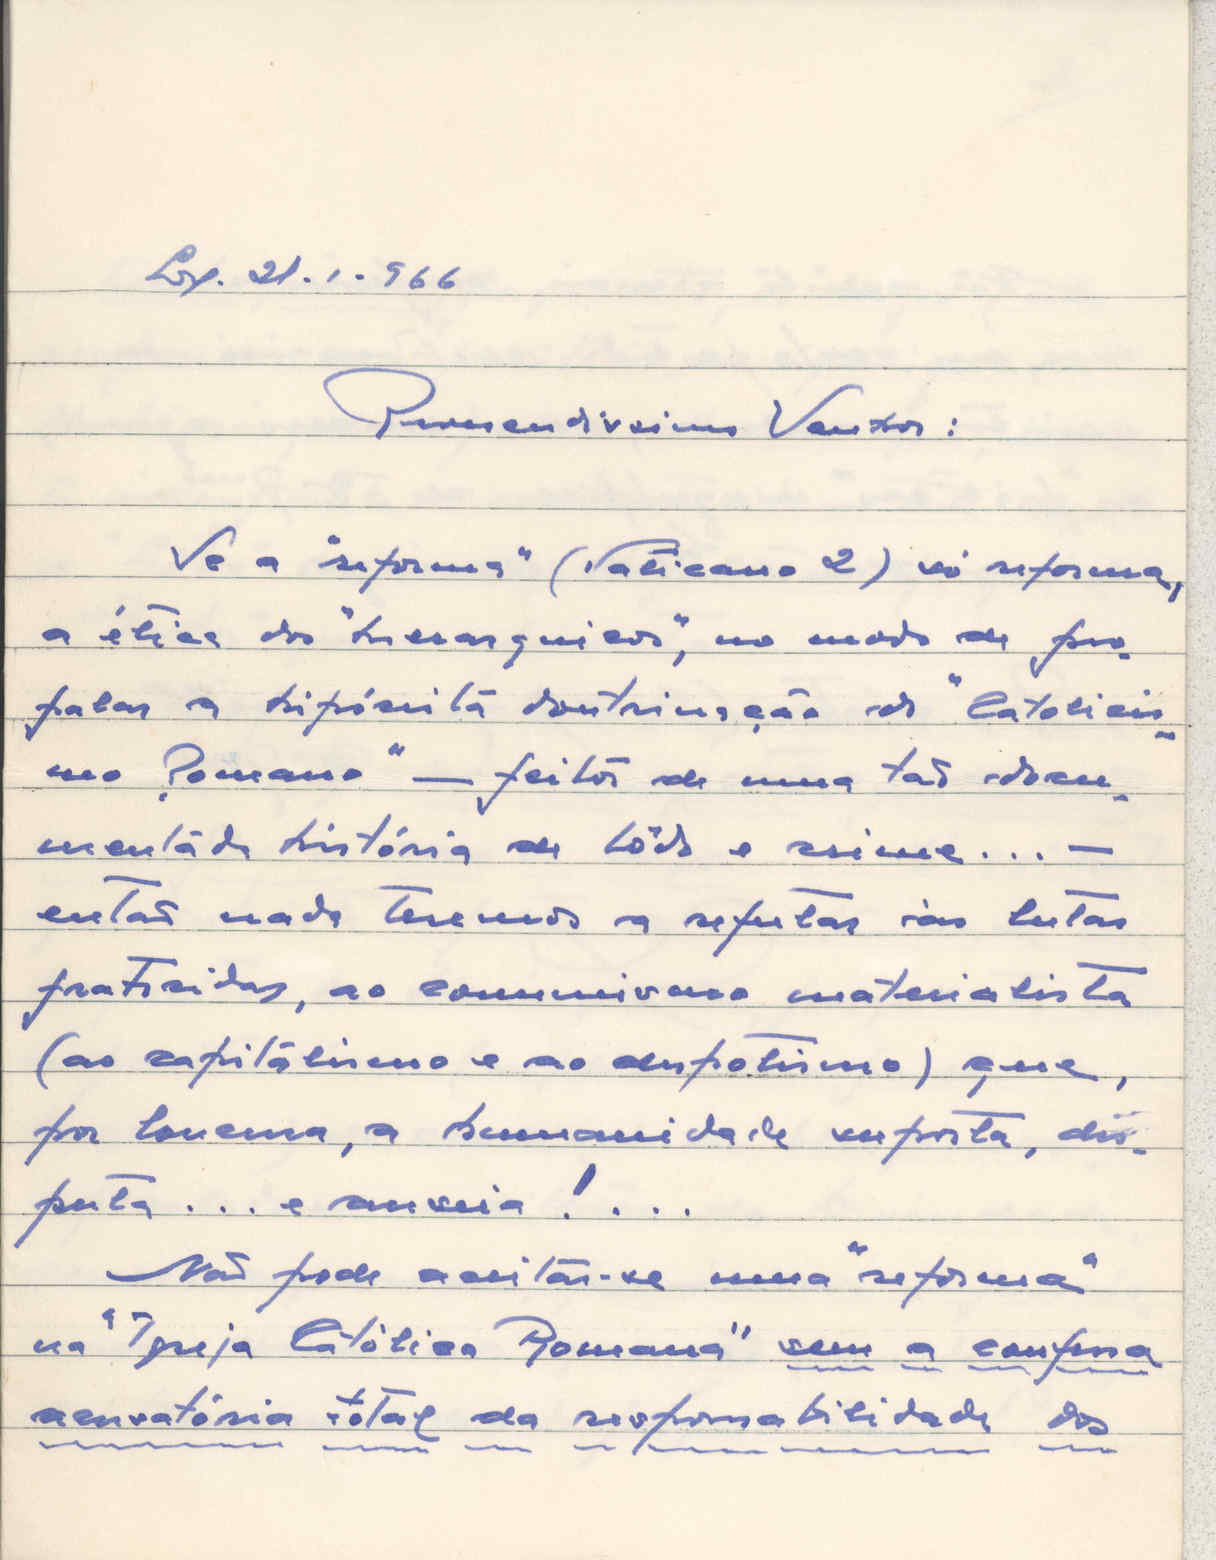 Lx. 21.1.966
Reverendissimo Senhor:
Se a "reforma" (Vaticano 2) só reforma,
a ética dos "hierarquicos", no modo de pro-
palar a hipócrita doutrinação do "Catolicis-
mo Romano" — feitôr de uma tão docu-
mentáda história de lôdo e crime... —
então nada teremos a refutar ás lutas
fratricidas, ao comunismo materialista
(ao capitálismo e ao despotismo) que,
por , a humanidade suporta, dis-
puta ... e anseia!...
Não pode aceitár-se uma "reforma"
na "Igreja Católica Romana" sem a confissa
acusatória total da responsabilidade dos